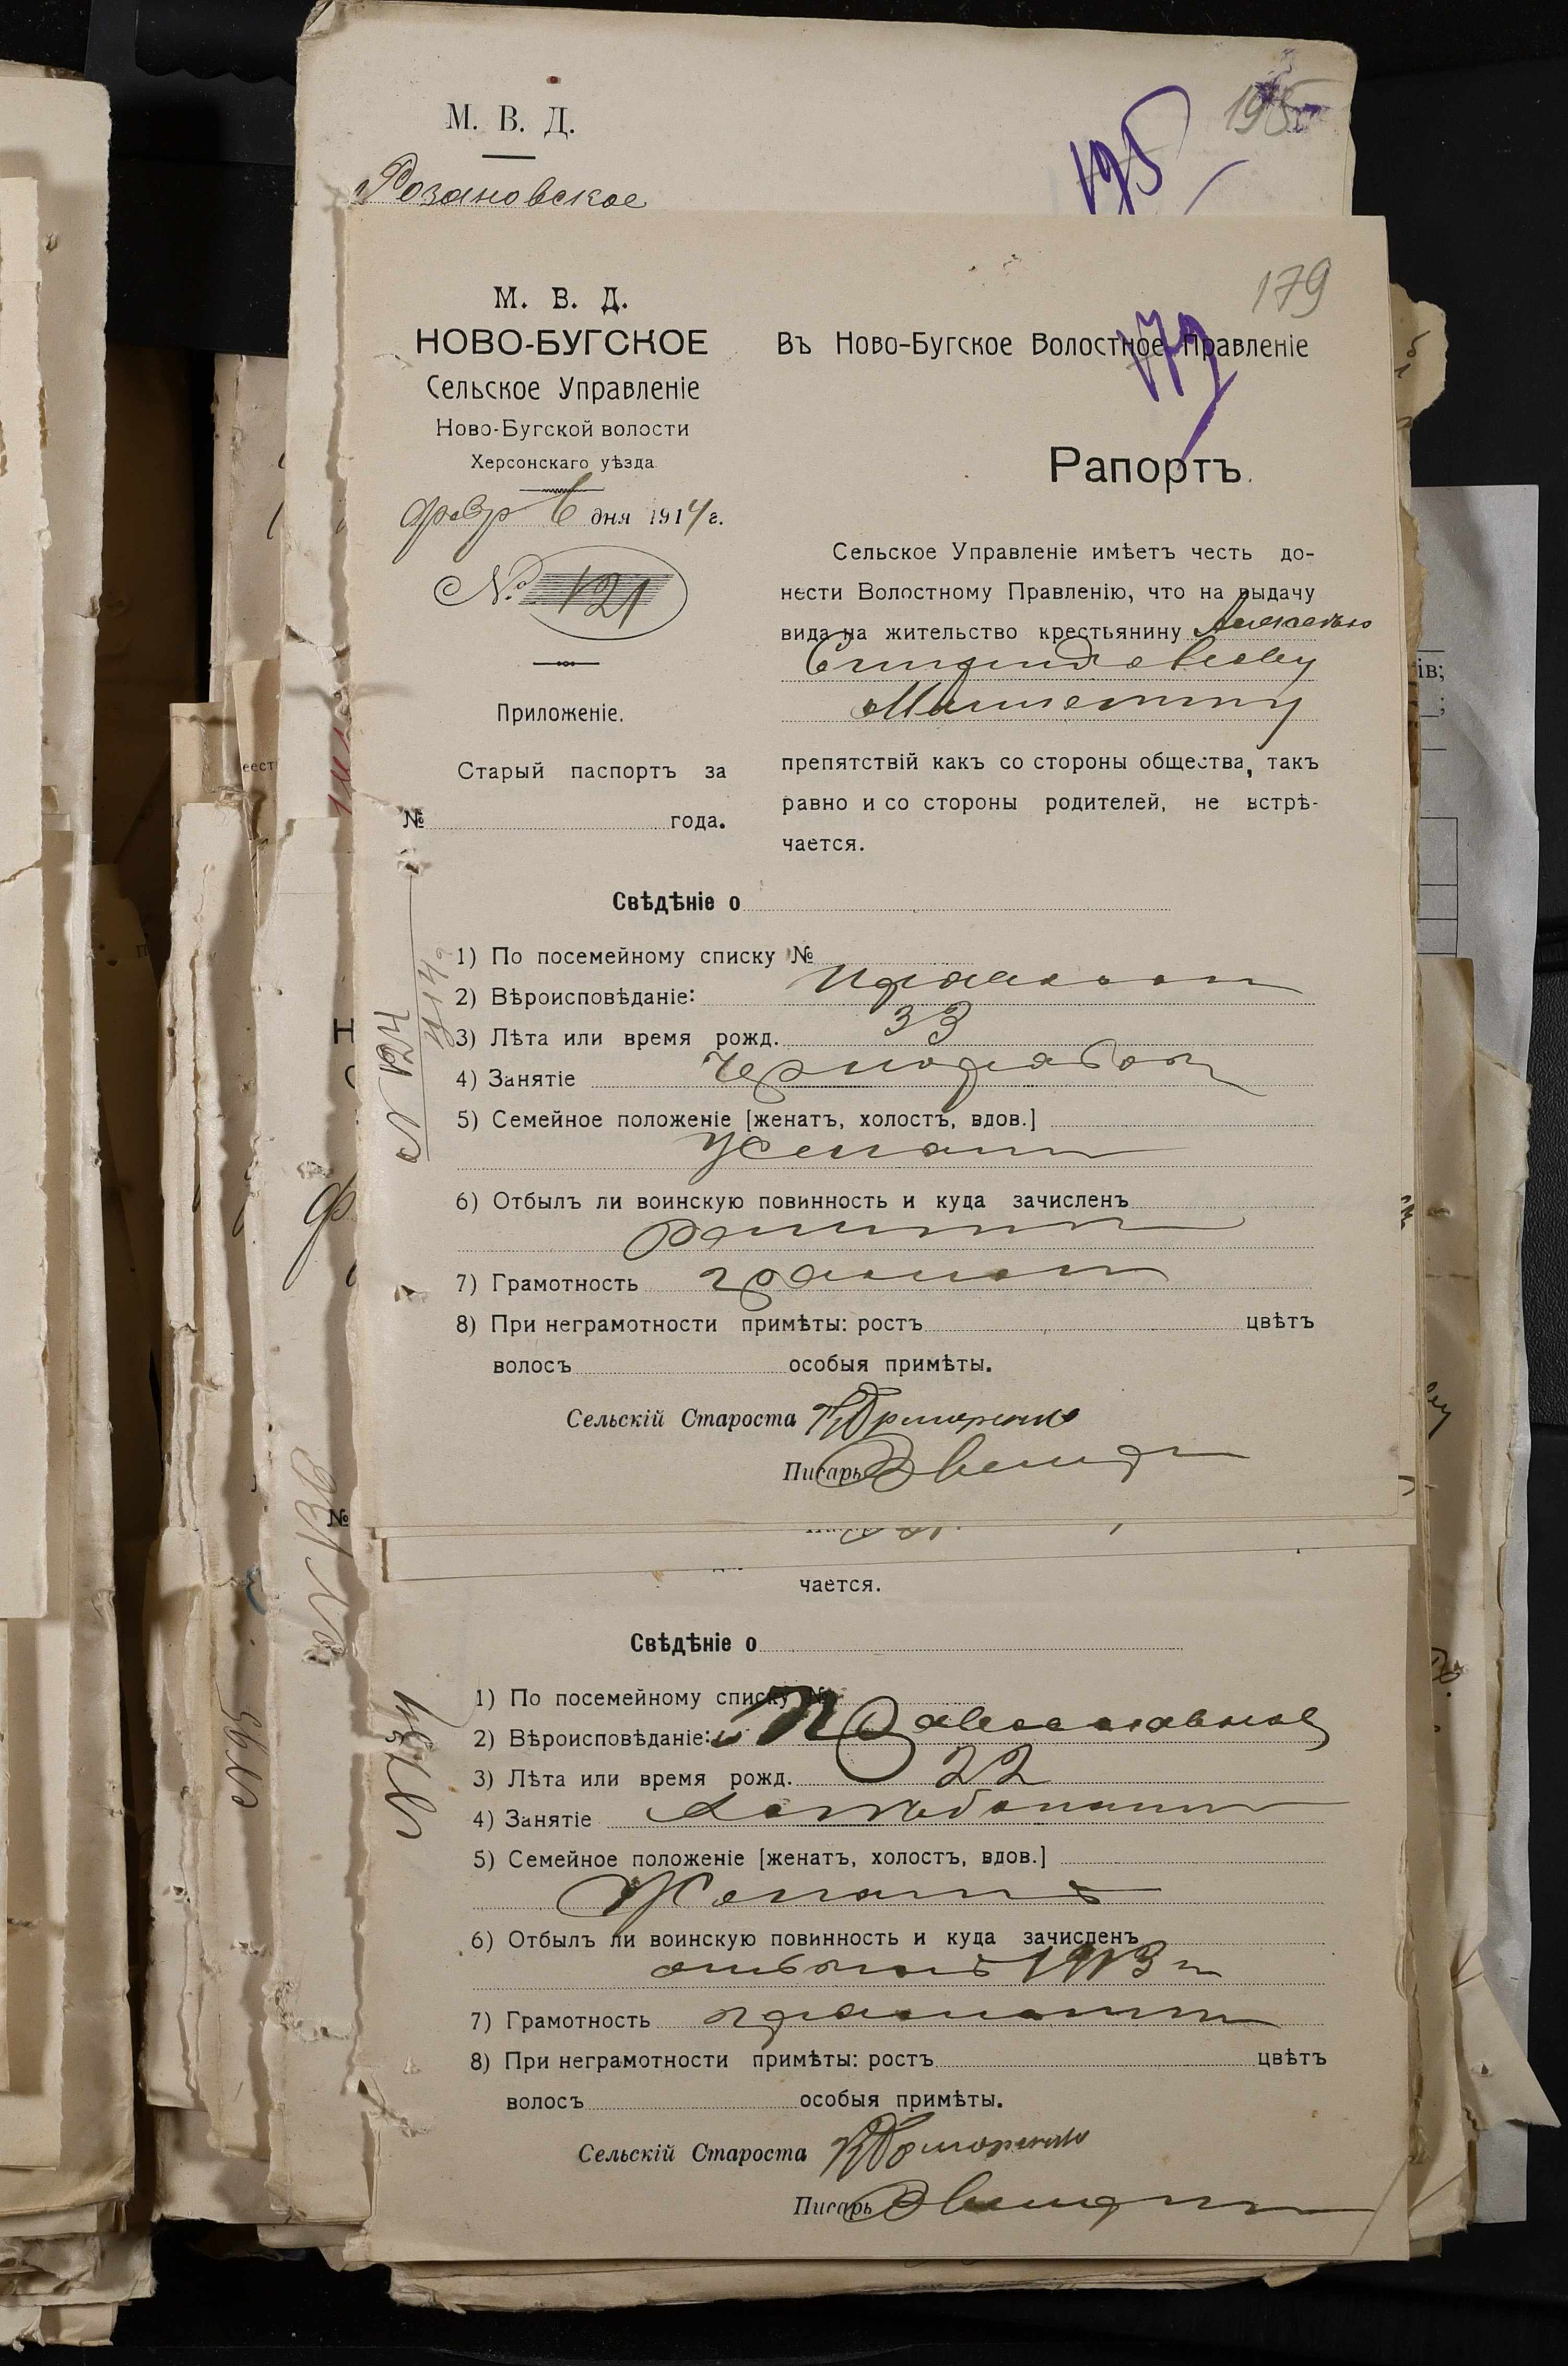 М. В. Д.
Розановское
195
195
179
179
М. В. Д.
НОВО-БУГСКОЕ
Сельское Управленіе
Ново-Бугской волости
Херсонскаго уѣзда
февр 6 дня 1914 г.
№ 121
Приложеніе.
Старый паспортъ за
№ года.
Въ Ново-Бугское Волостное Правленіе
Рапортъ.
Сельское Управленіе имѣетъ честь до-
нести Волостному Правленію, что на выдачу
вида на жительство крестьянину
препятствій какъ со стороны общества, такъ
равно и со стороны родителей, не встрѣ-
чается.
Свѣдѣніе о
1) По посемейному списку №
2) Вѣроисповѣданіе:
3) Лѣта или время рожд. 33
4) Занятіе чернорабоч
5) Семейное положеніе [женатъ, холостъ, вдов.]
Женат
6) Отбылъ ли воинскую повинность и куда зачисленъ
7) Грамотность грамот
8) При неграмотности примѣты: ростъ цвѣтъ
волосъ особыя примѣты.
Сельскій Староста
Писарь
№
чается.
Свѣдѣніе о
1) По посемейному списку №
2) Вѣроисповѣданіе: Православное
3) Лѣта или время рожд. 22
4) Занятіе
5) Семейное положеніе [женатъ, холостъ, вдов.]
Женатъ
6) Отбылъ ли воинскую повинность и куда зачисленъ
отбылъ 1913 г
7) Грамотность грамотный
8) При неграмотности примѣты: ростъ цвѣтъ
волосъ особыя примѣты.
Сельскій Староста
Писарь